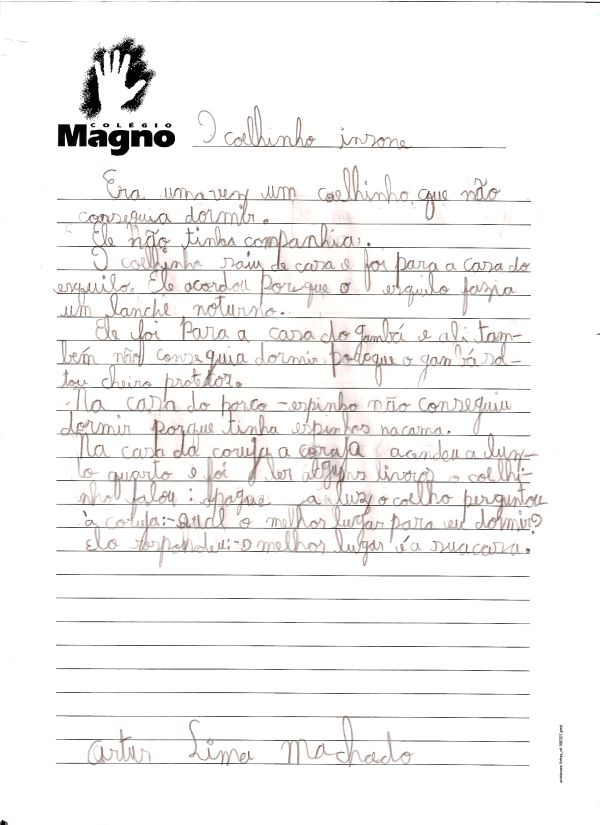 COLÉGIO
Magno
O coelhinho insone
Era uma vez um coelhinho que não
conseguia dormir.
Ele não tinha companhia.
O coelhinho saiu de casa e foi para a casa do
esquilo. Ele acordou porque o esquilo fazia
um lanche noturno.
Ele foi Para a casa do gambá e ali tam-
bém não conseguia dormir porque o gambá sol-
tou cheiro protetor.
Na casa do porco-espinho não conseguiu
dormir porque tinha espinhos na cama.
Na casa da coruja a coruja acendeu a luz
do quarto e foi ler alguns livros o coelhi-
nho falou: apague a luz o coelho perguntou
à coruja:-Qual o melhor lugar para eu dormir?
Ela respondeu:-o melhor lugar é a sua casa.
Artur Lima Machado